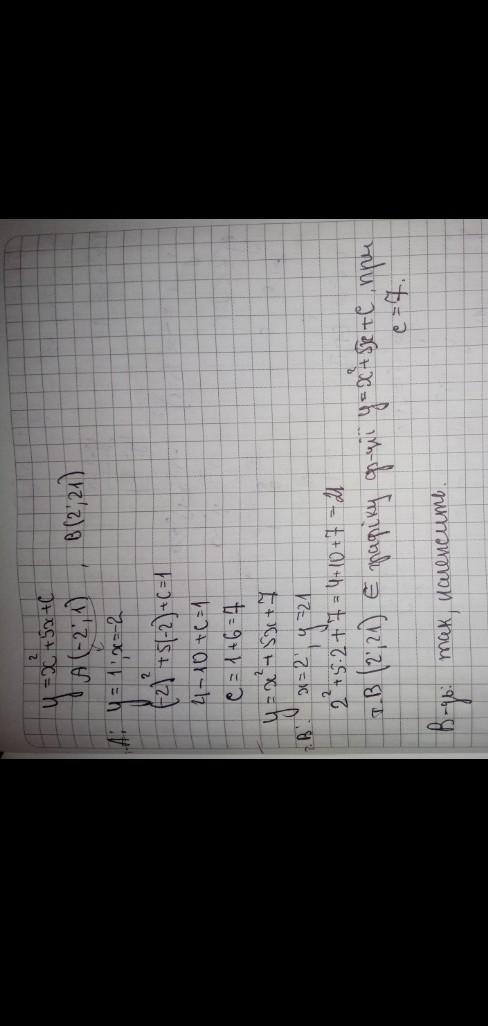 y = x² + 5x + c
A(-2; 1) , B(2; 21)
т.A: y = 1; x = -2
(-2)² + 5(-2) + c = 1
4 - 10 + c = 1
c = 1 + 6 = 7
y = x² + 5x + 7
т.B: x = 2; y = 21
2² + 5·2 + 7 = 4 + 10 + 7 = 21
т.B (2; 21) ∈ графіку ф-ції y = x² + 5x + c, при
c = 7.
В-дь: так, належить.